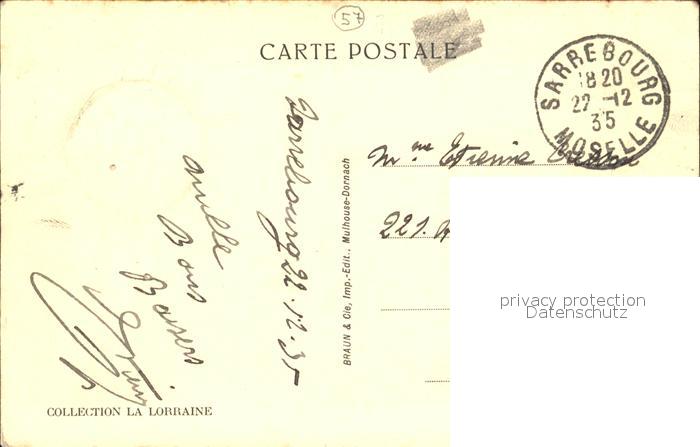 57
CARTE POSTALE
SARREBOURG
18 20
22 - 12
35
MOSELLE
Sarrebourg 22.12.35
mille
Bons
Baisers
BRAUN & Cie, Imp.-Edit., Mulhouse-Dornach
Mme Etienne
221.
privacy protection
Datenschutz
COLLECTION LA LORRAINE